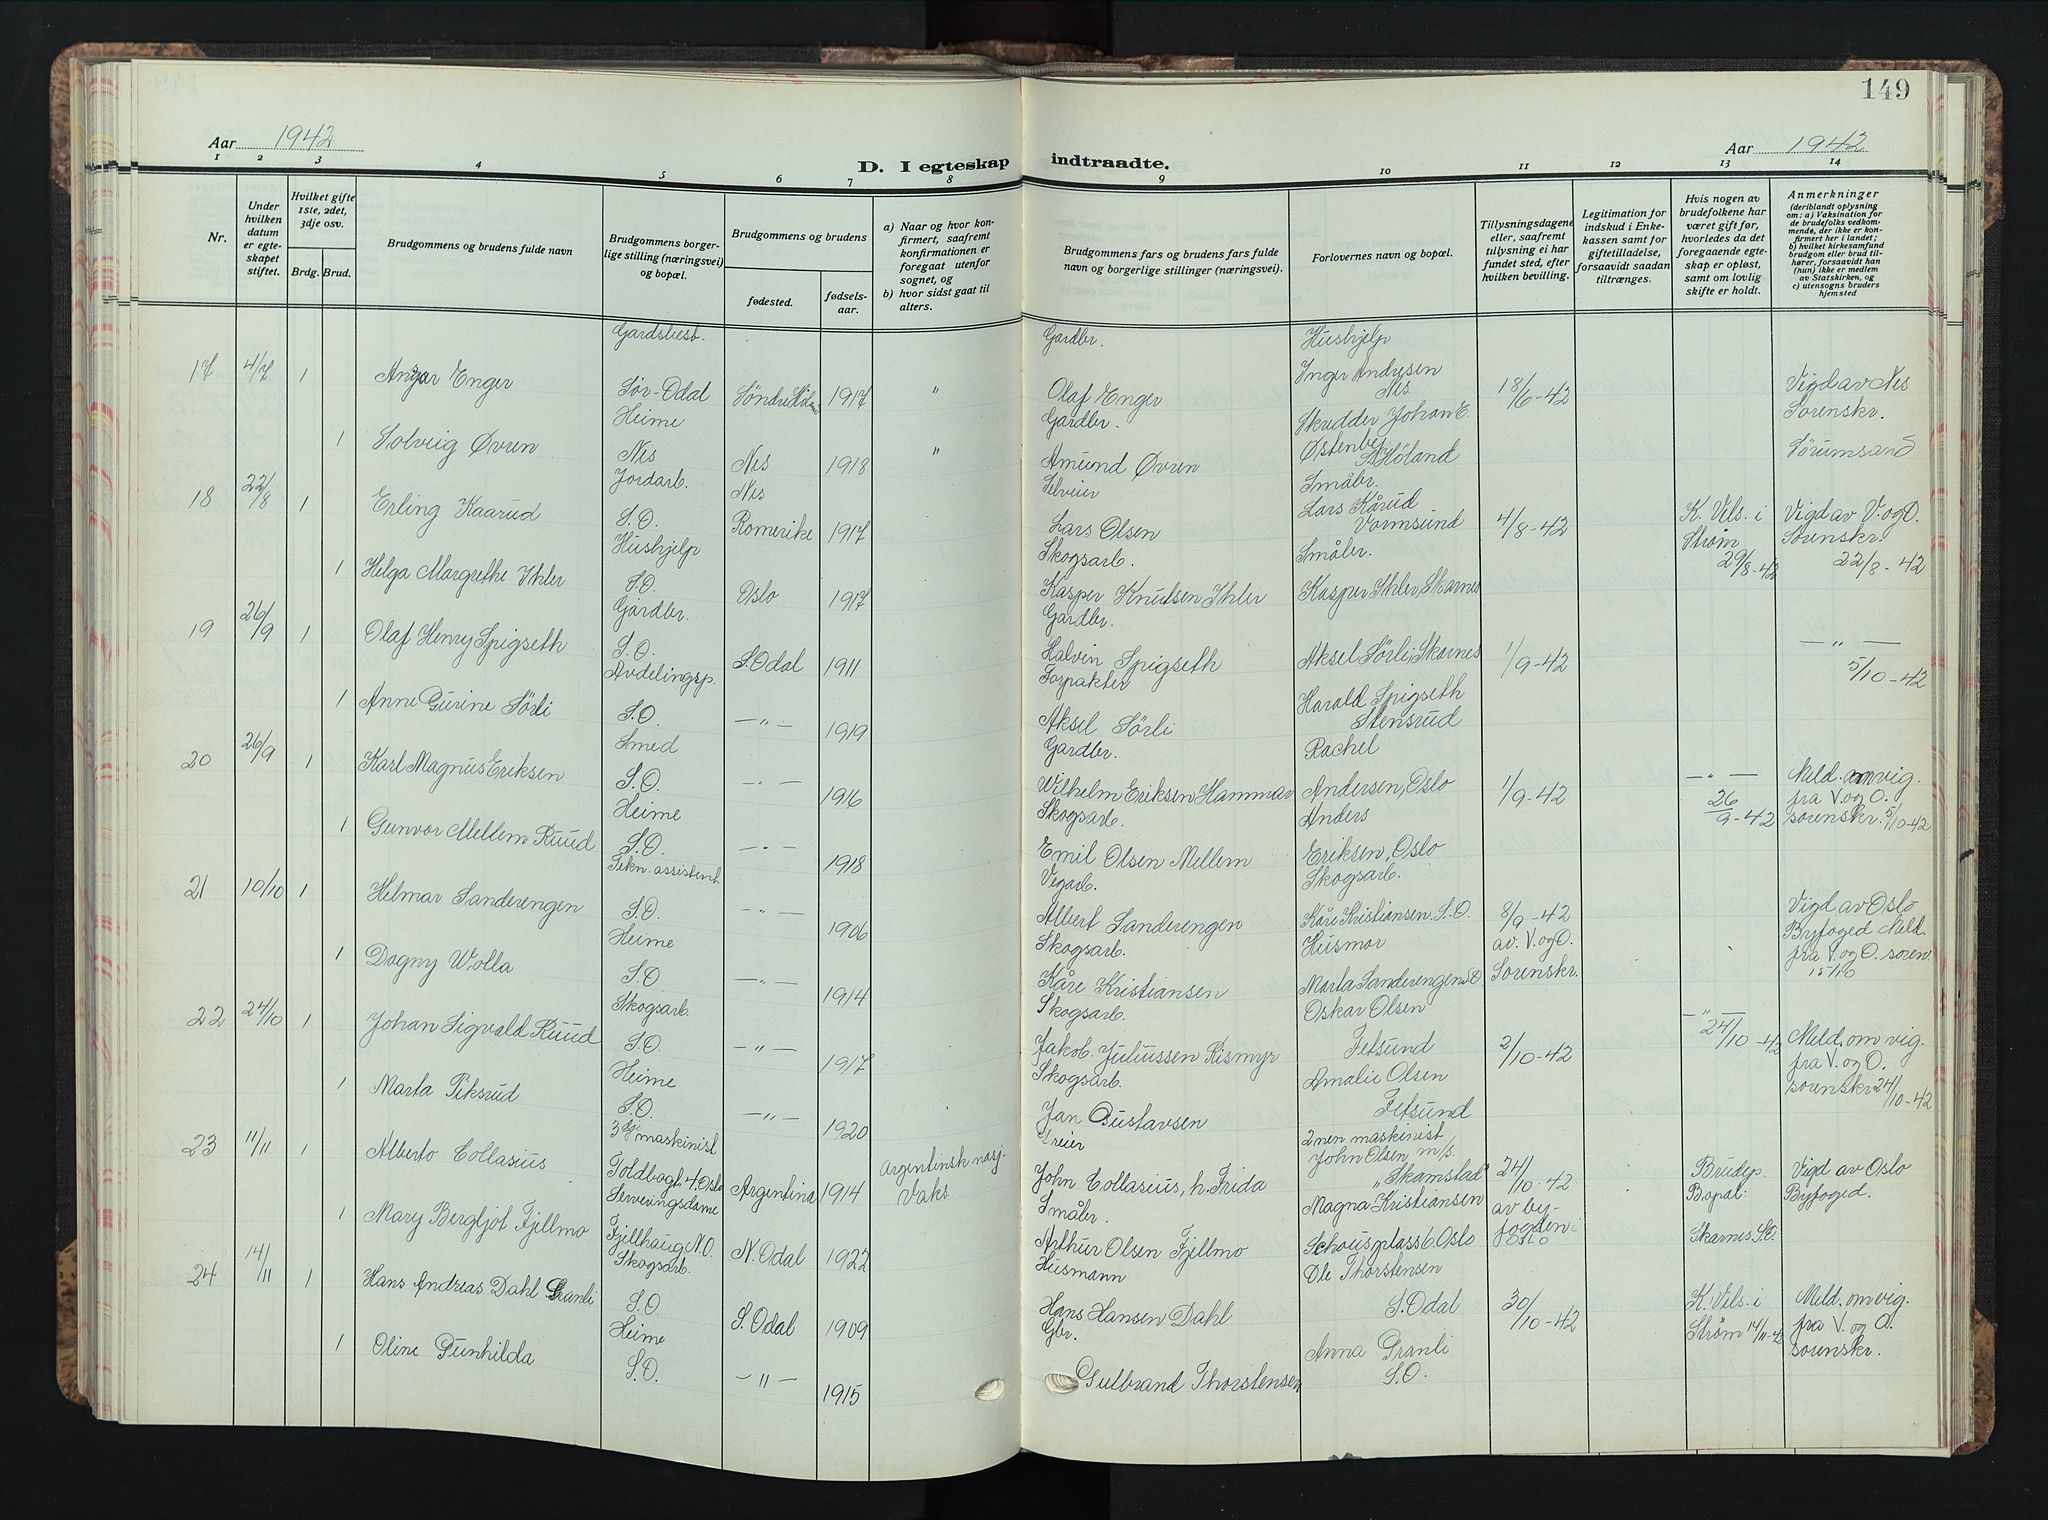 149
Aar 1942
Aar 1942
D. I egteskap indtraadte.
1 2 3 4 5 6 7 8 9 10 11 12 13 14
Nr.
Under hvilken datum er egteskapet stiftet.
Hvilket gifte 1ste, 2det, 3dje osv.
Brdg. Brud.
Brudgommens og brudens fulde navn
Brudgommens borgerlige stilling (næringsvei) og bopæl.
Brudgommens og brudens
fødested.
fødselsaar.
a) Naar og hvor konfirmert, saafremt konfirmationen er foregaat utenfor sognet, og
b) hvor sidst gaat til alters.
Brudgommens fars og brudens fars fulde navn og borgerlige stillinger (næringsvei).
Forlovernes navn og bopæl.
Tillysningsdagene eller, saafremt tillysning ei har fundet sted, efter hvilken bevilling.
Legitimation for indskud i Enkekassen samt for giftetilladelse, forsaavidt saadan tiltrænges.
Hvis nogen av brudefolkene har været gift før, hvorledes da det foregaaende egteskap er opløst, samt om lovlig skifte er holdt.
Anmerkninger (deriblandt oplysning om: a) Vaksination for de brudefolks vedkommende, der ikke er konfirmert her i landet; b) hvilket kirkesamfund brudgom eller brud tilhører, forsaavidt han (hun) ikke er medlem av Statskirken, og c) utensogns bruders hjemsted
Gardsbest. Gardbr. Hushjelp
17 4/7 1 Ansgar Enger Sør-Odal Søndre Høland 1917 " Olaf Enger Inger Andresen Nes 18/6-42 Vigd av Nes Sorenskr.
Heime Gardbr. Skredder Johan E.
1 Solveig Øvren Nes Nes 1918 " Amund Øvren Østenbej S. Høland Sørumsand
Jordarb. Nes Selveier Småbr.
18 22/8 1 Erling Kaarud S.O. Romerike 1917 Lars Olsen Lars Kårud Vormsund 4/8-42 K. Vels. i Strøm 29/8-42 Vigd av V. og O. Sorenskr. 22/8-42
Hushjelp Skogsarb. Småbr.
1 Helga Margrethe Ihler S.O. Oslo 1917 Kasper Knutsen Ihler Kasper Ihler, Skarnes
Gardbr. Gardbr.
19 26/9 1 Olaf Henry Spigseth S.O. S. Odal 1911 Halvin Spigseth Aksel Sørli, Skarnes 1/9-42 — " — 5/10-42
Avdelingsp. Forpakter Harald Spigseth
1 Anne Gurine Sørli S.O. — " — 1919 Aksel Sørli Stensrud
Smed Gardbr. Rachel
20 26/9 1 Karl Magnus Eriksen S.O. — " — 1916 Wilhelm Eriksen Hammar Andersen, Oslo 1/9-42 — " — 26/9-42 Meld. om vig. fra V. og O. sorenskr. 5/10-42
Heime Skogsarb. Anders
1 Gunvor Mellem Ruud S.O. — " — 1918 Emil Olsen Mellem Eriksen, Oslo
Tekn. assistent Vegarb. Skogsarb.
21 10/10 1 Helmar Sanderengen S.O. — " — 1906 Albert Sanderengen Kåre Kristiansen S.O. 8/9-42 av. V. og O. Sorenskr. Vigd av Oslo Byfoged Meld. fra V. og O. soren. 15/10
Heime Skogsarb. Husmor
1 Dagny Wolla S.O — " — 1914 Kåre Kristiansen Marta Sanderengen S.O
Skogsarb. Skogsarb. Oskar Olsen
22 24/10 1 Johan Sigvald Ruud S.O. — " — 1917 Jakob Juliussen Rismyr Fetsund 2/10-42 — " — 24/10-42 Meld. om vig. fra V. og O. sorenskr 24/10-42
Heime Skogsarb. Amalie Olsen
1 Marta Piksrud S.O. — " — 1920 Jan Gustavsen Fetsund
3dje maskinist 2nen maskinist
23 11/11 1 Alberto Collasius Toldbogt 4. Oslo Argentina 1914 Argentinsk nasj. Vaks John Collasius, h. Frida John Olsen, m/s. "Skamstad" 24/10-42 av byfogden i Oslo Brudep. Bopæl: Skarnes S.O. Vigd av Oslo Byfoged.
Serveringsdame Småbr. Magna Kristiansen
1 Mary Bergljot Fjellmo Fjellhaug N.O. N. Odal 1922 Arthur Olsen Fjellmo Schousplass 6 Oslo
Skogsarb. Husmann Ole Thorstensen
24 14/11 1 Hans Andreas Dahl Granli S.O. S. Odal 1909 Hans Hansen Dahl S. Odal 30/10-42 K. Vels. i Strøm 14/11-42 Meld. om vig. fra V. og O. sorenskr.
Heime Gbr. Anna Granli
1 Oline Gunhilda S.O. — " — 1915 Gulbrand Thorstensen S.O.